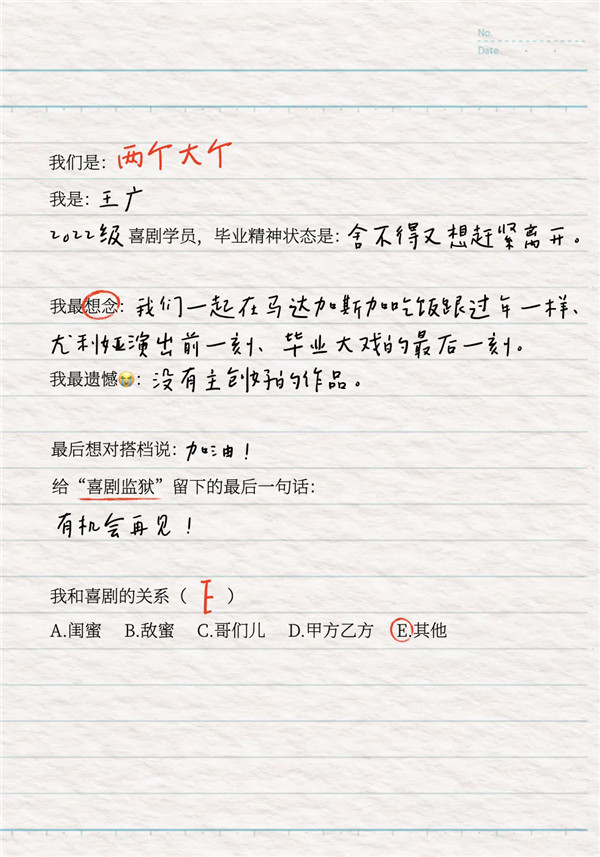 No.
Date
我们是：两个大个
我是：王广
2022级喜剧学员，毕业精神状态是：舍不得又想赶紧离开。
我最想念：我们一起在马达加斯加吃饭跟过年一样、
尤利娅演出前一刻、毕业大戏的最后一刻。
我最遗憾😭：没有主创好的作品。
最后想对搭档说：加油！
给“喜剧监狱”留下的最后一句话：
有机会再见！
我和喜剧的关系（ E ）
A.闺蜜 B.敌蜜 C.哥们儿 D.甲方乙方 E.其他